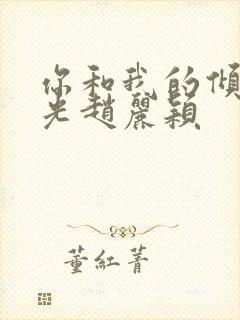 你和我的傾
光趙麗穎
董紅菁